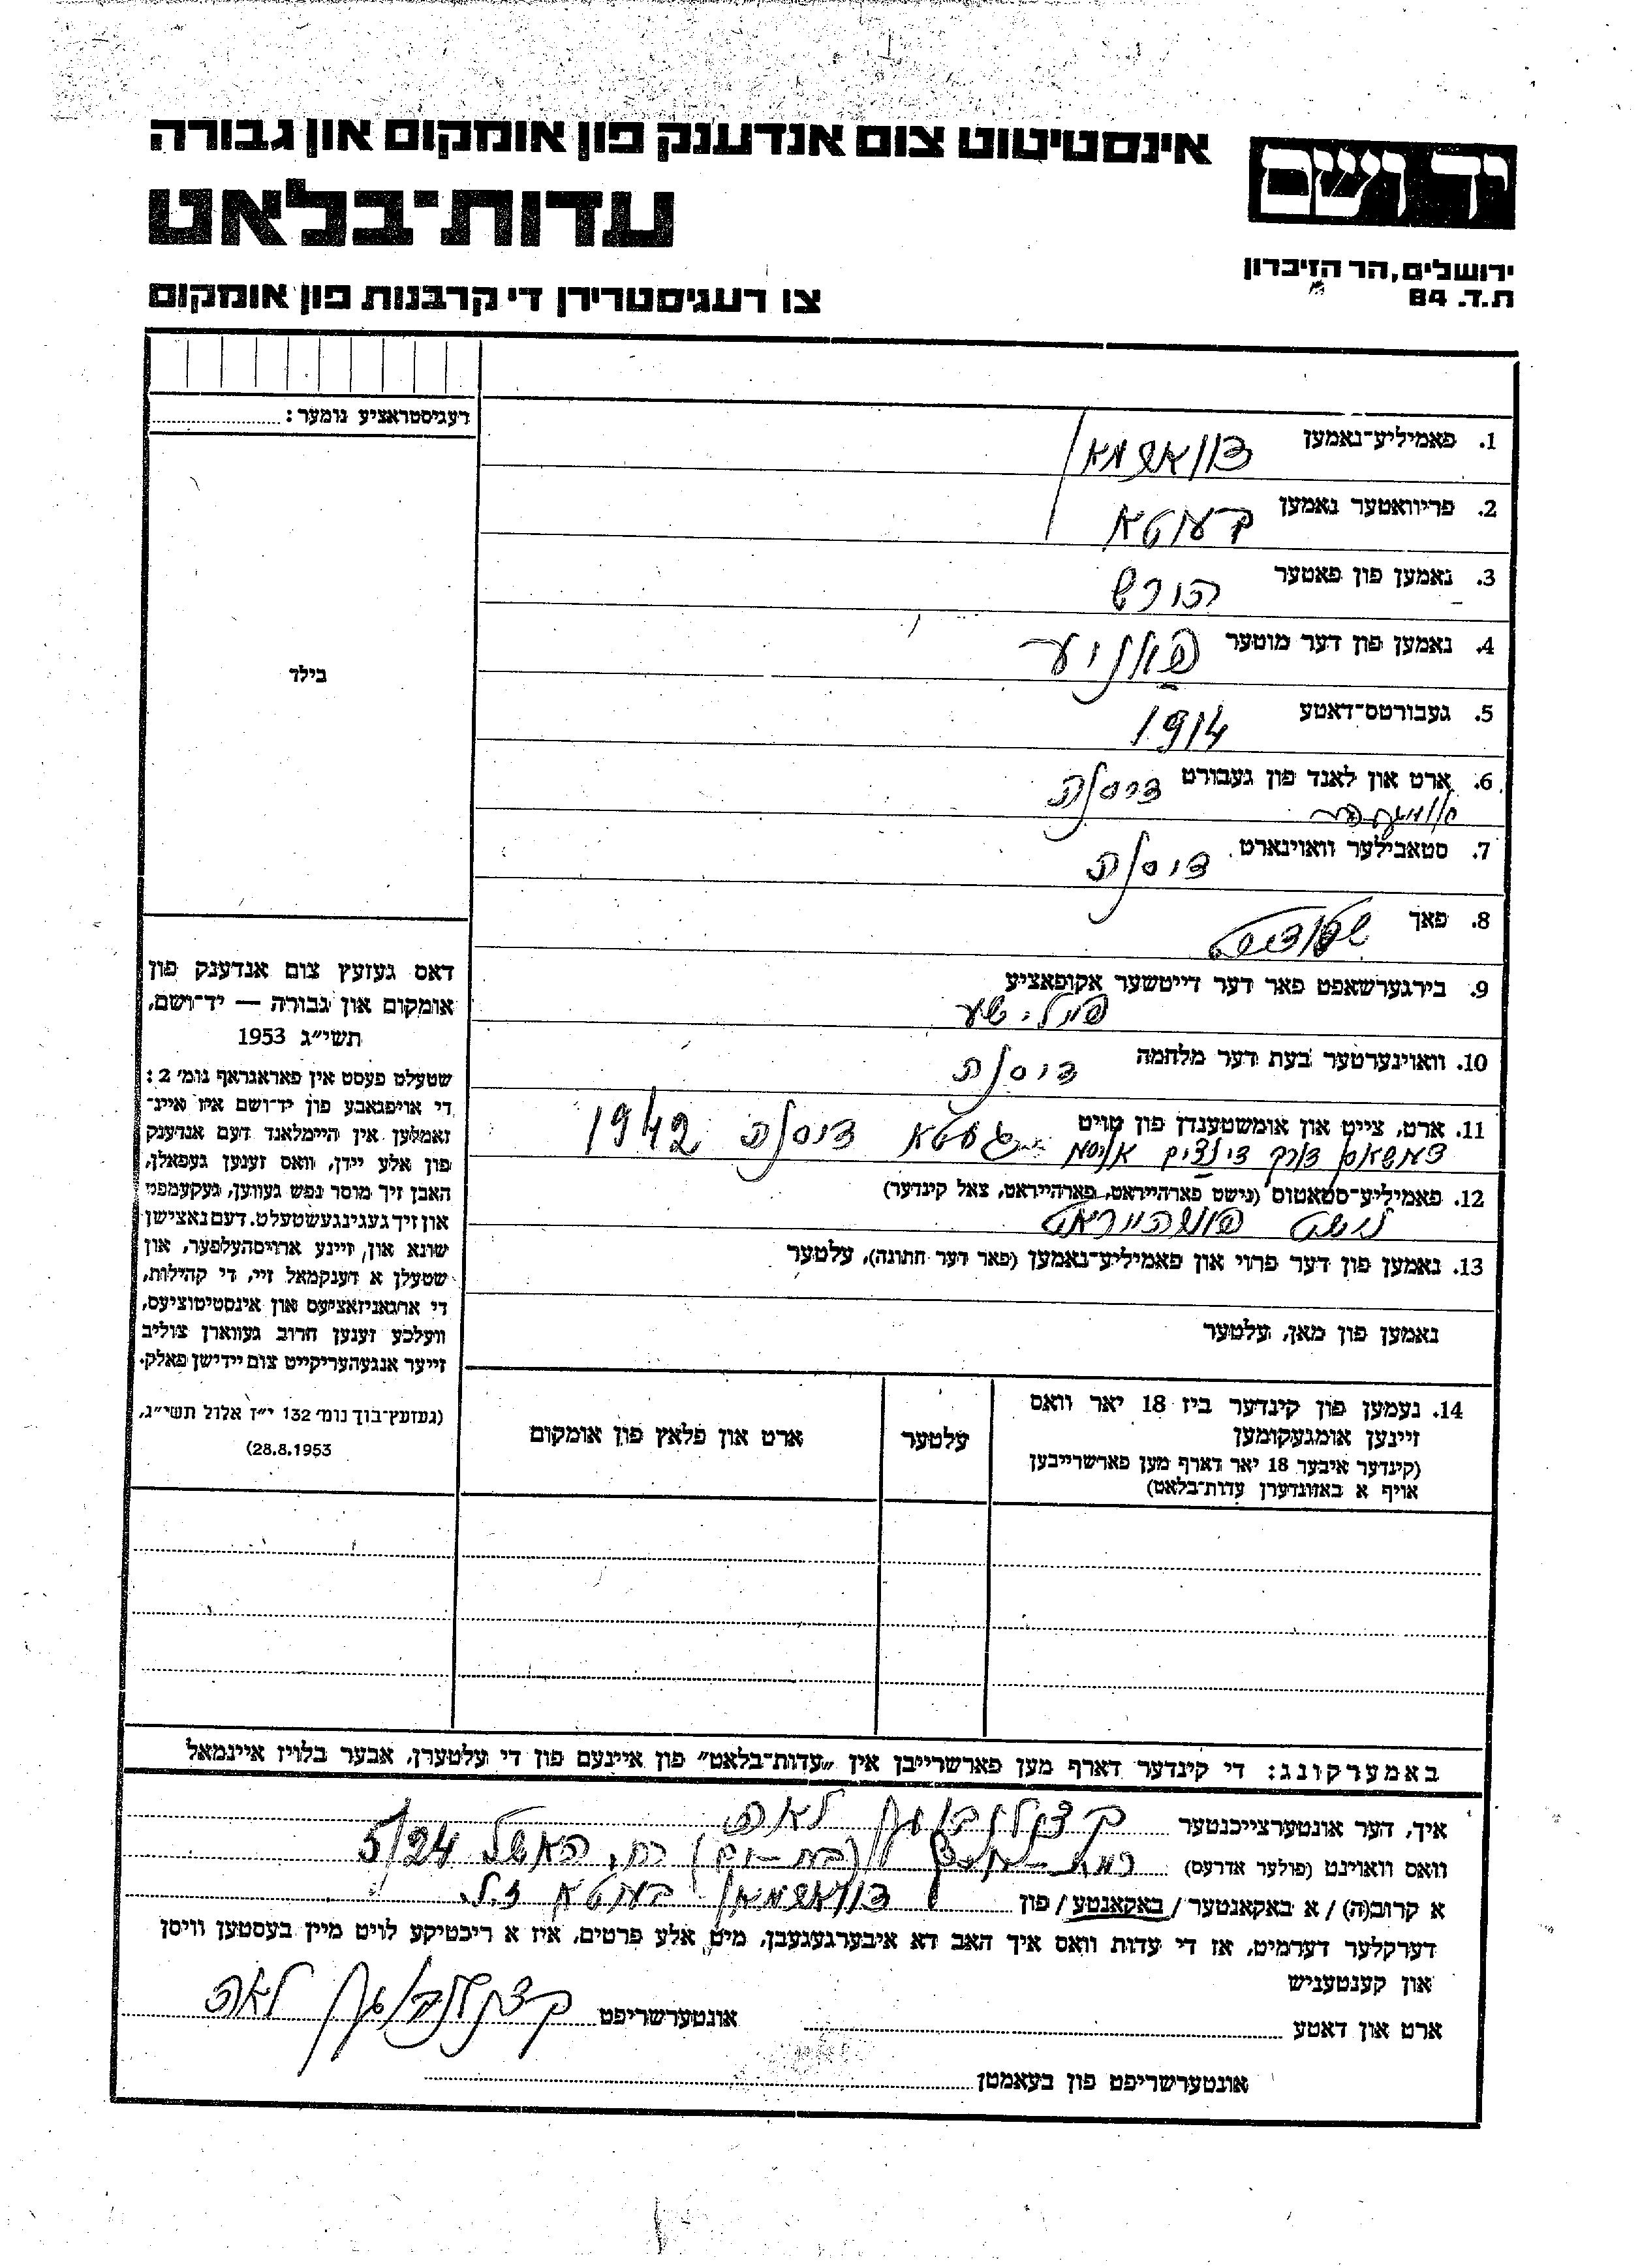 אינסטיטוט צום אנדענק פון אומקום און גבורה
יד ושם
עדות־בלאט
ירושלים, הר הזיכרון
ת.ד. 84
צו רעגיסטרירן די קרבנות פון אומקום
רעגיסטראציע נומער:
בילד
1. פאמיליע־נאמען דוואשמאן
2. פריוואטער נאמען בעטא
3. נאמען פון פאטער הירש
4. נאמען פון דער מוטער פאניע
5. געבורטס־דאטע 1914
6. ארט און לאנד פון געבורט דיסנה
7. סטאבילער וווינארט דיסנה
8. פאך
9. בירגערשאפט פאר דער דייטשער אקופאציע פוילישע
10. וווינערטער בעת דער מלחמה דיסנה
11. ארט, צייט און אומשטענדן פון טויט
געטא דיסנה 1942
12. פאמיליע־סטאטוס (נישט פארהייראט, פארהייראט, צאל קינדער)
נישט פארהייראט
13. נאמען פון דער פרוי און פאמיליע־נאמען (פאר דער חתונה), עלטער
נאמען פון מאן, עלטער
14. נעמען פון קינדער ביז 18 יאר וואס
זיינען אומגעקומען
(קינדער איבער 18 יאר דארף מען פארשרייבען
אויף א באזונדערן עדות־בלאט)
עלטער
ארט און פלאץ פון אומקום
דאס געזעץ צום אנדענק פון
אומקום און גבורה — יד־ושם,
תשי״ג 1953
שטעלט פעסט אין פאראגראף נומ׳ 2:
די אויפגאבע פון יד־ושם איז איינ־
זאמלען אין היימלאנד דעם אנדענק
פון אלע יידן, וואס זענען געפאלן,
האבן זיך מוסר נפש געווען, געקעמפט
און זיך געגינגעשטעלט דעם נאצישן
שונא און זיינע ארויסהעלפער, און
שטעלן א דענקמאל זיי, די קהילות,
די ארגאניזאציעס און אינסטיטוציעס,
וועלכע זענען חרוב געווארן צוליב
זייער אנגעהעריקייט צום יידישן פאלק.
(געזעץ־בוך נומ׳ 132 י״ז אלול תשי״ג,
28.8.1953)
באמערקונג: די קינדער דארף מען פארשרייבן אין „עדות־בלאט״ פון איינעם פון די עלטערן, אבער בלויז איינמאל
איך, דער אונטערצייכנטער לאה
וואס וואוינט (פולער אדרעס) (בת-ים) רח. האשל 5/24
א קרוב(ה) / א באקאנטער / באקאנטע / פון דוואשמאן בעטא ז.ל.
דערקלער דערמיט, אז די עדות וואס איך האב דא איבערגעגעבן, מיט אלע פרטים, איז א ריכטיקע לויט מיין בעסטען וויסן
און קענטעניש
ארט און דאטע
אונטערשריפט לאה
אונטערשריפט פון בעאמטן